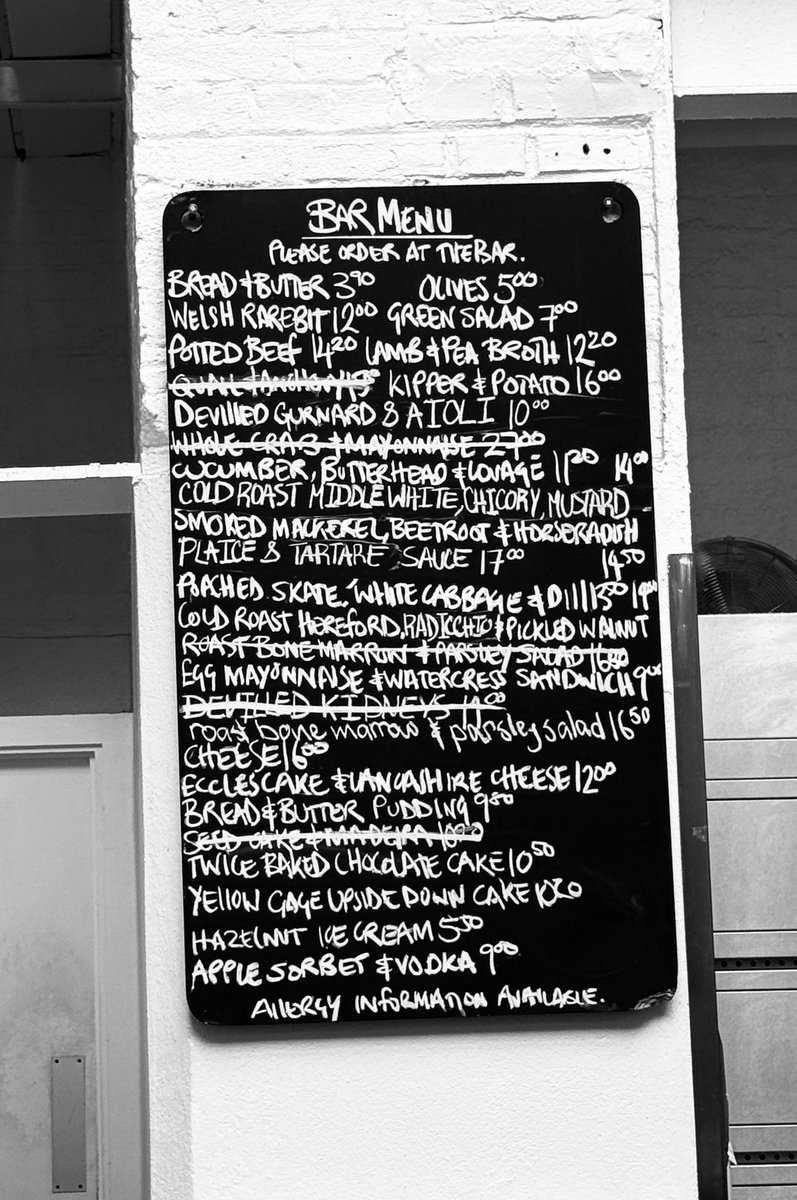 BAR MENU
PLEASE ORDER AT THE BAR.
BREAD & BUTTER 3.90 OLIVES 5.00
WELSH RAREBIT 12.00 GREEN SALAD 7.00
POTTED BEEF 14.20 LAMB & PEA BROTH 12.20
KIPPER & POTATO 16.00
DEVILLED GURNARD & AIOLI 10.00
WHOLE CRAB & MAYONNAISE 27.00
CUCUMBER, BUTTERHEAD & LOVAGE 11.20 14.00
COLD ROAST MIDDLEWHITE, CHICORY, MUSTARD
SMOKED MACKEREL, BEETROOT & HORSERADISH
PLAICE & TARTARE SAUCE 17.00 14.50
POACHED SKATE, WHITE CABBAGE & DILL
COLD ROAST HEREFORD, RADICCHIO & PICKLED WALNUT
ROAST BONE MARROW & PARSLEY SALAD
EGG MAYONNAISE & WATERCRESS SANDWICH
DEVILLED KIDNEYS
roast bone marrow & parsley salad 16.50
CHEESE 16.00
ECCLES CAKE & LANCASHIRE CHEESE 12.00
BREAD & BUTTER PUDDING 9.80
SEED CAKE & MADEIRA
TWICE BAKED CHOCOLATE CAKE 10.50
YELLOW GAGE UPSIDE DOWN CAKE 10.20
HAZELNUT ICE CREAM 5.50
APPLE SORBET & VODKA 9.00
ALLERGY INFORMATION AVAILABLE.